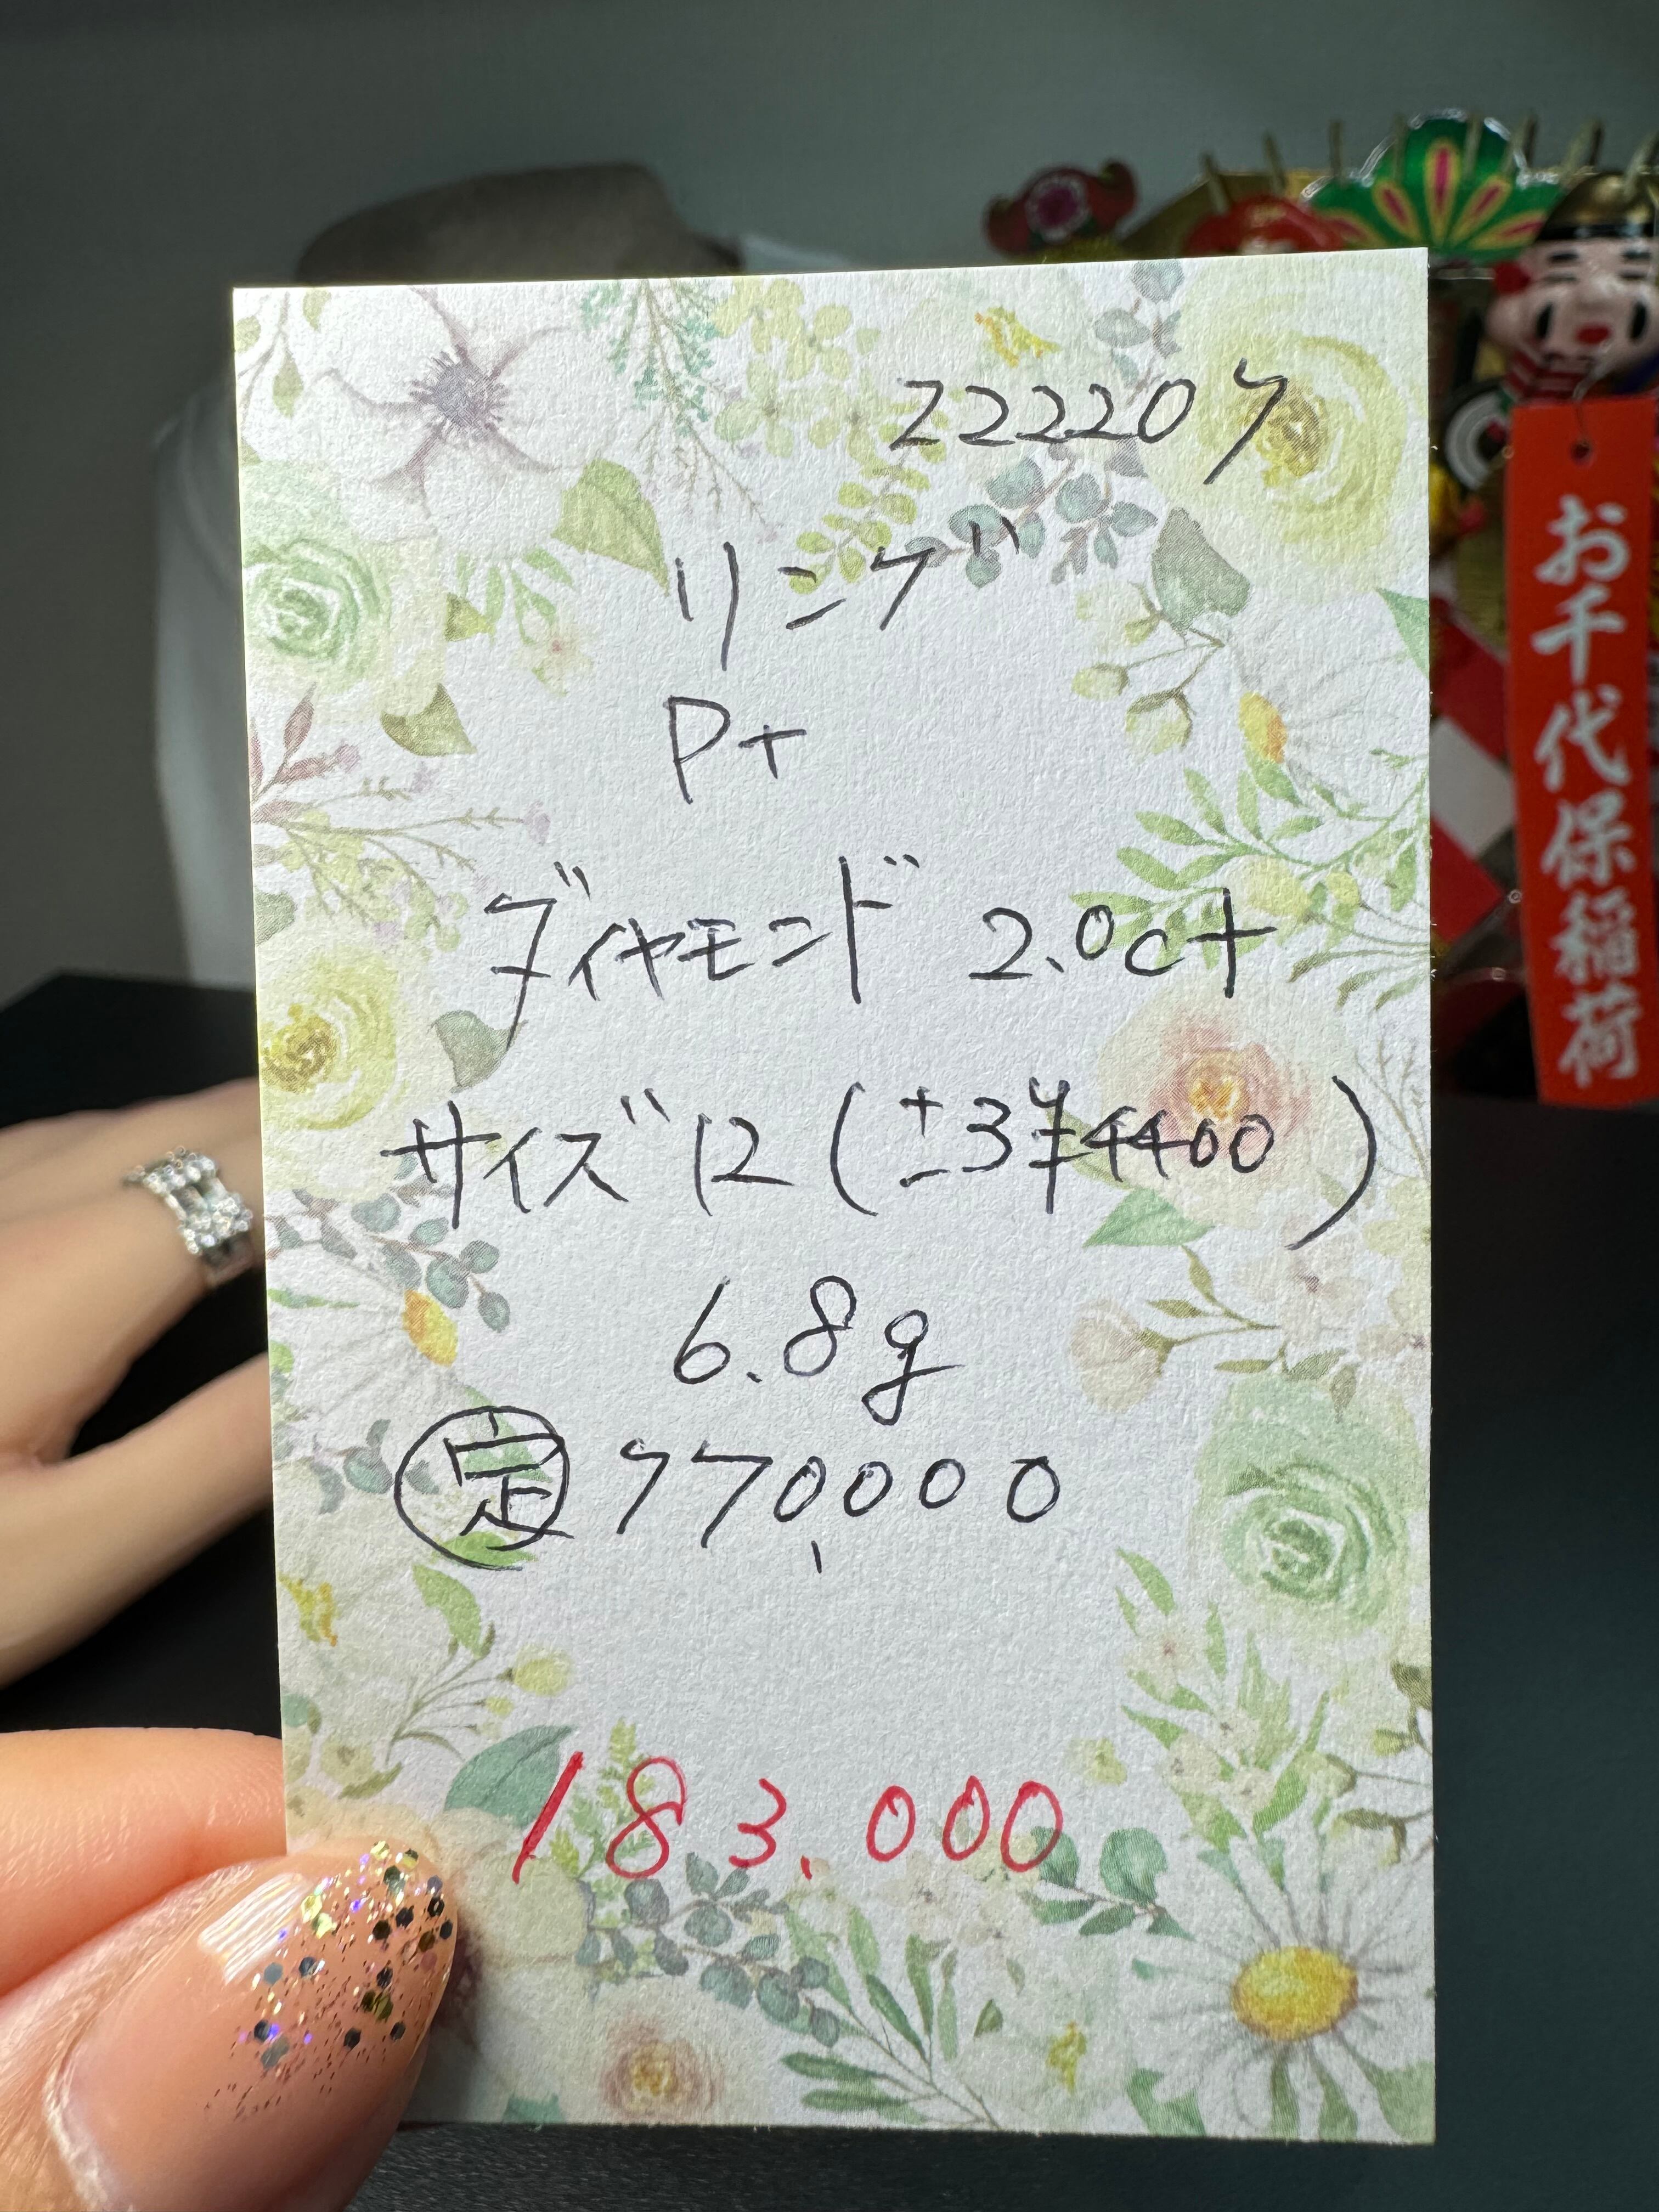 222207
リング
Pt
ダイヤモンド 2.0ct
サイズ12(±3¥4400)
6.8g
定 770,000
183,000
お千代保稲荷